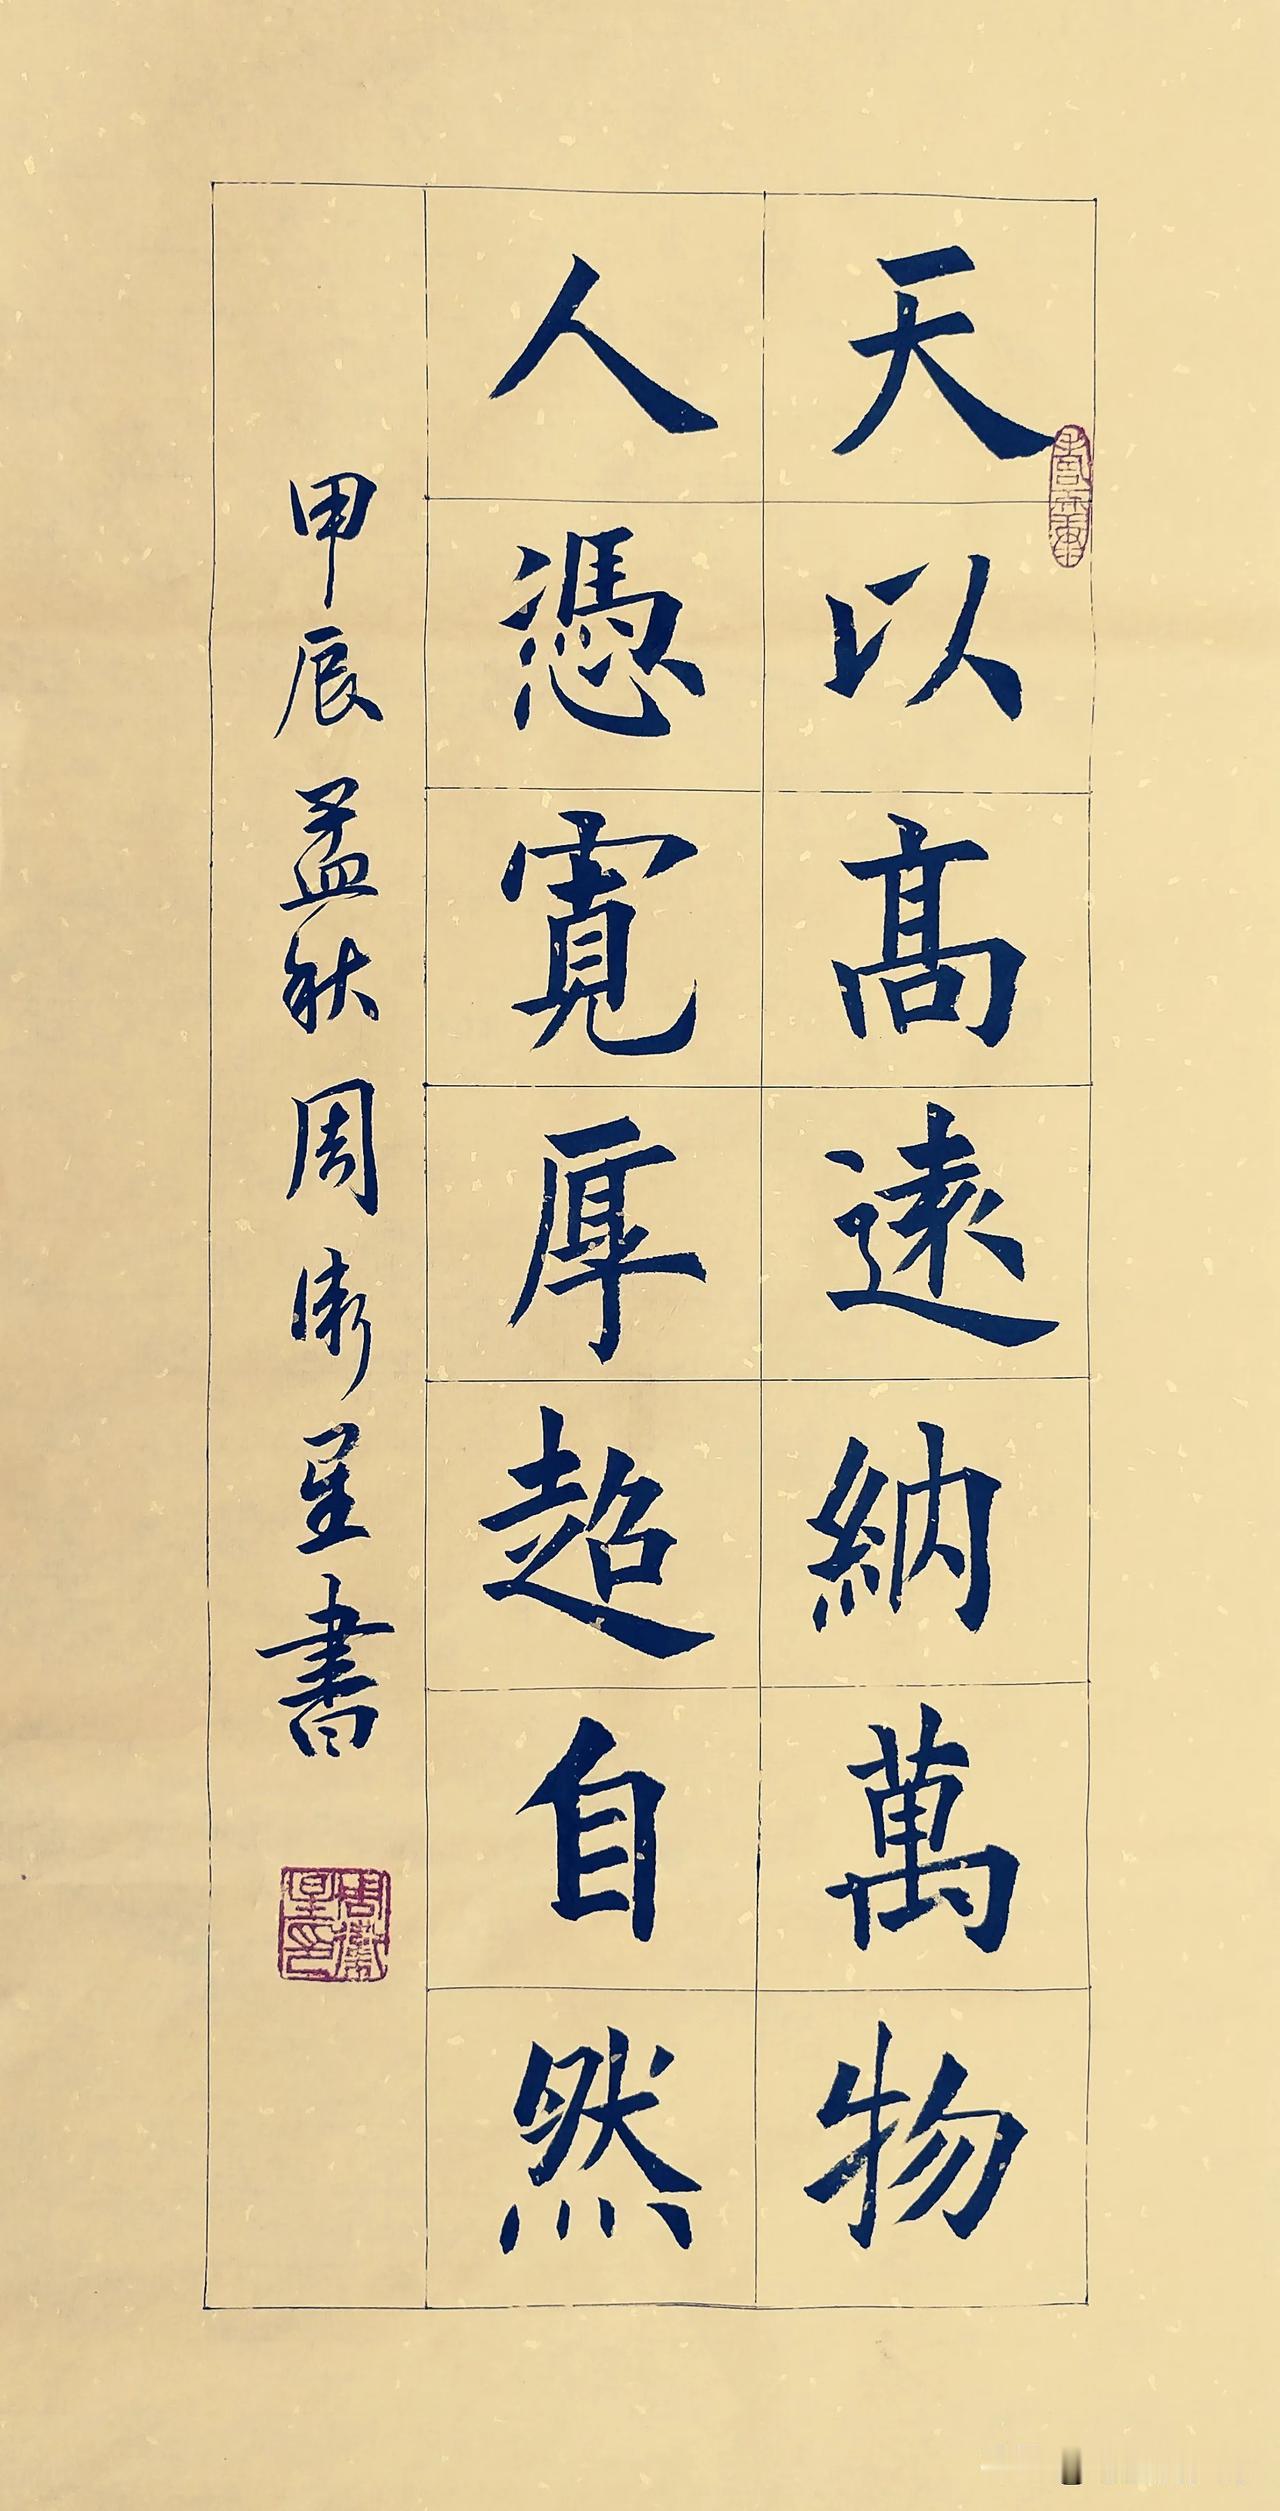 天以高遠納萬物
人憑寬厚超自然
甲辰孟秋周衛星書
周衛星印